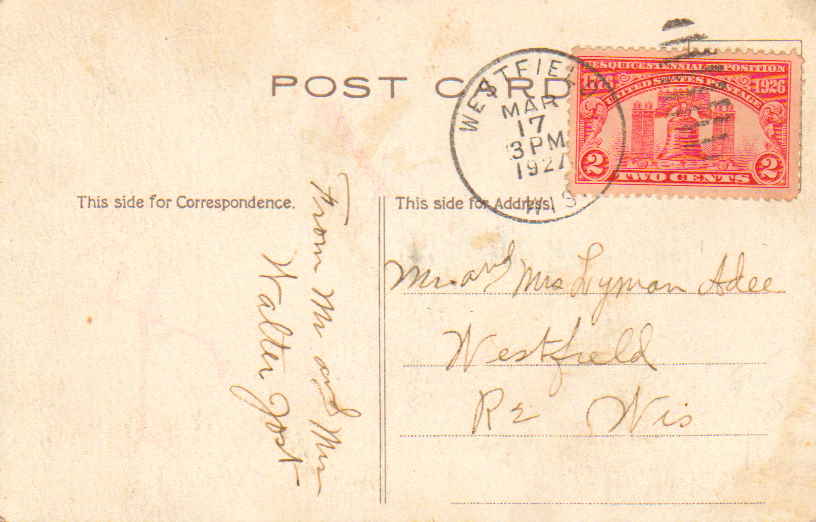 POST CARD
WESTFIELD
MAR
17
3 PM
1927
WIS.
SESQUICENTENNIAL EXPOSITION
1776 1926
UNITED STATES POSTAGE
2 2
TWO CENTS
This side for Correspondence.
This side for Address.
From Mr and Mrs
Walter Yost
Mr. and Mrs Lyman Adee
Westfield
R2 Wis